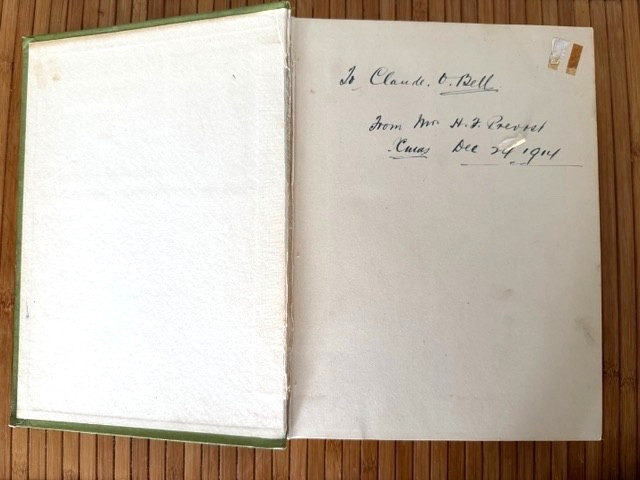 To Claude. O. Bell
From Mr. H. F. Prevost
Xmas Dec 24 1914